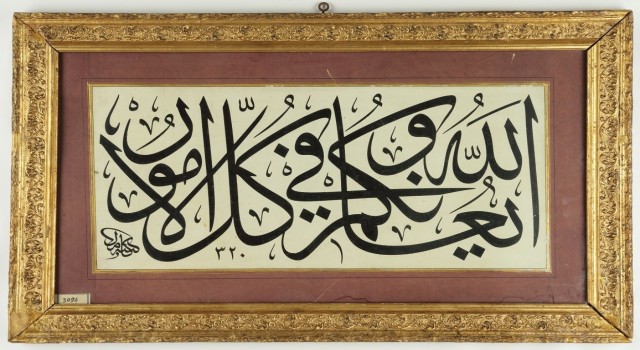 الله يعاونكم في كل الامور
١٣٢٠
3096